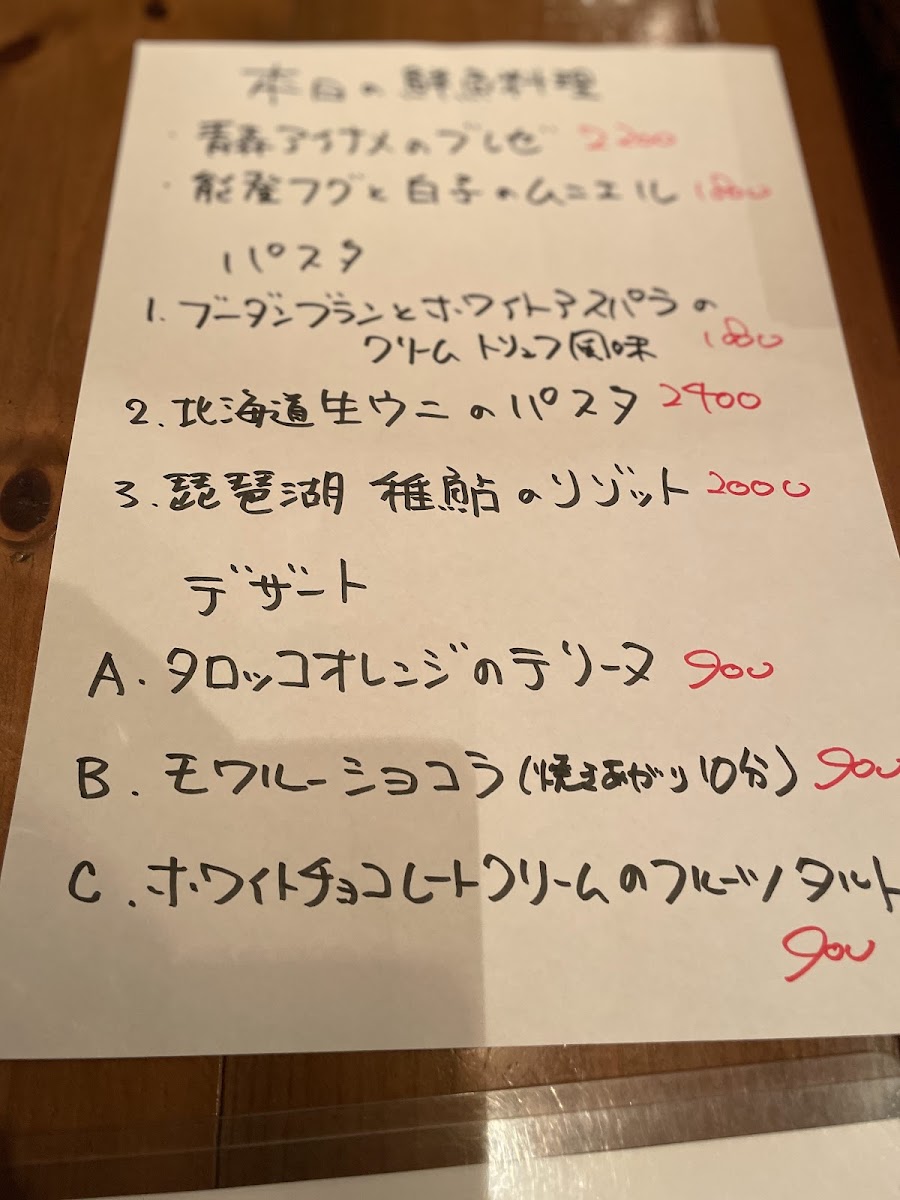 本日の鮮魚料理
・青森アイナメのブレゼ 2200
・能登フグと白子のムニエル 1800
パスタ
1. ブーダンブランとホワイトアスパラの
クリーム トリュフ風味 1800
2. 北海道生ウニのパスタ 2400
3. 琵琶湖 稚鮎のリゾット 2000
デザート
A. タロッコオレンジのテリーヌ 900
B. モワルーショコラ(焼きあがり10分) 900
C. ホワイトチョコレートクリームのフルーツタルト
900